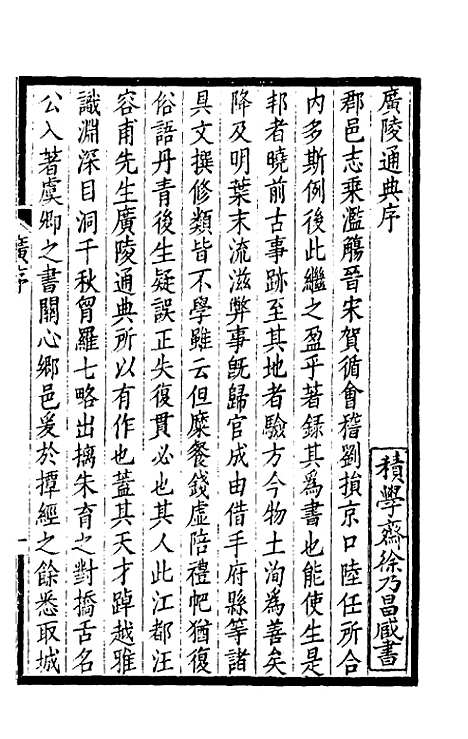 廣陵通典序
積學齋徐乃昌藏書
郡邑志乘濫觴晉宋賀循會稽劉損京口陸任所合
内多斯例後此繼之盈乎著録其爲書也能使生是
邦者曉前古事跡至其地者驗方今物土洵爲善矣
降及明葉末流滋弊事旣歸官成由借手府縣等諸
具文撰修類皆不學雖云但糜餐錢虛陪禮帊猶復
俗語丹青後生疑誤正失復貫必也其人此江都汪
容甫先生廣陵通典所以有作也蓋其天才踔越雅
識淵深目洞千秋胷羅七略出摛朱育之對撟舌名
公入著虞卿之書關心鄉邑爰於撢經之餘悉取城
廣序
一